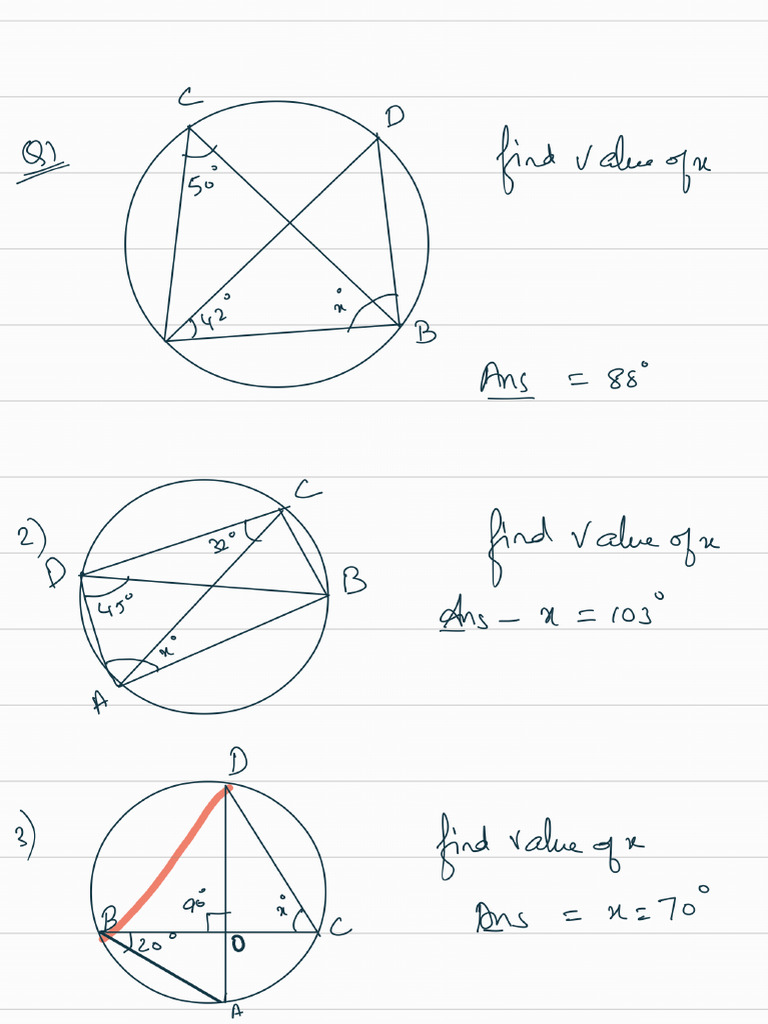 C
D
Q1)
find value of x
50°
42°
x°
B
Ans = 88°
C
2)
32°
find value of x
D
B
45°
Ans - x = 103°
x°
A
D
3)
find value of x
90°
x°
B
Ans = x = 70°
C
20°
O
A